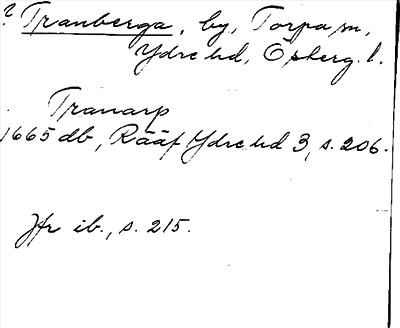 ? Tranberga, by, Torpa sn,
Ydre hd, Ösherg. l.
Tranarp
1665 db, Rääf Ydre hd 3, s. 206.
Jfr ib., s. 215.